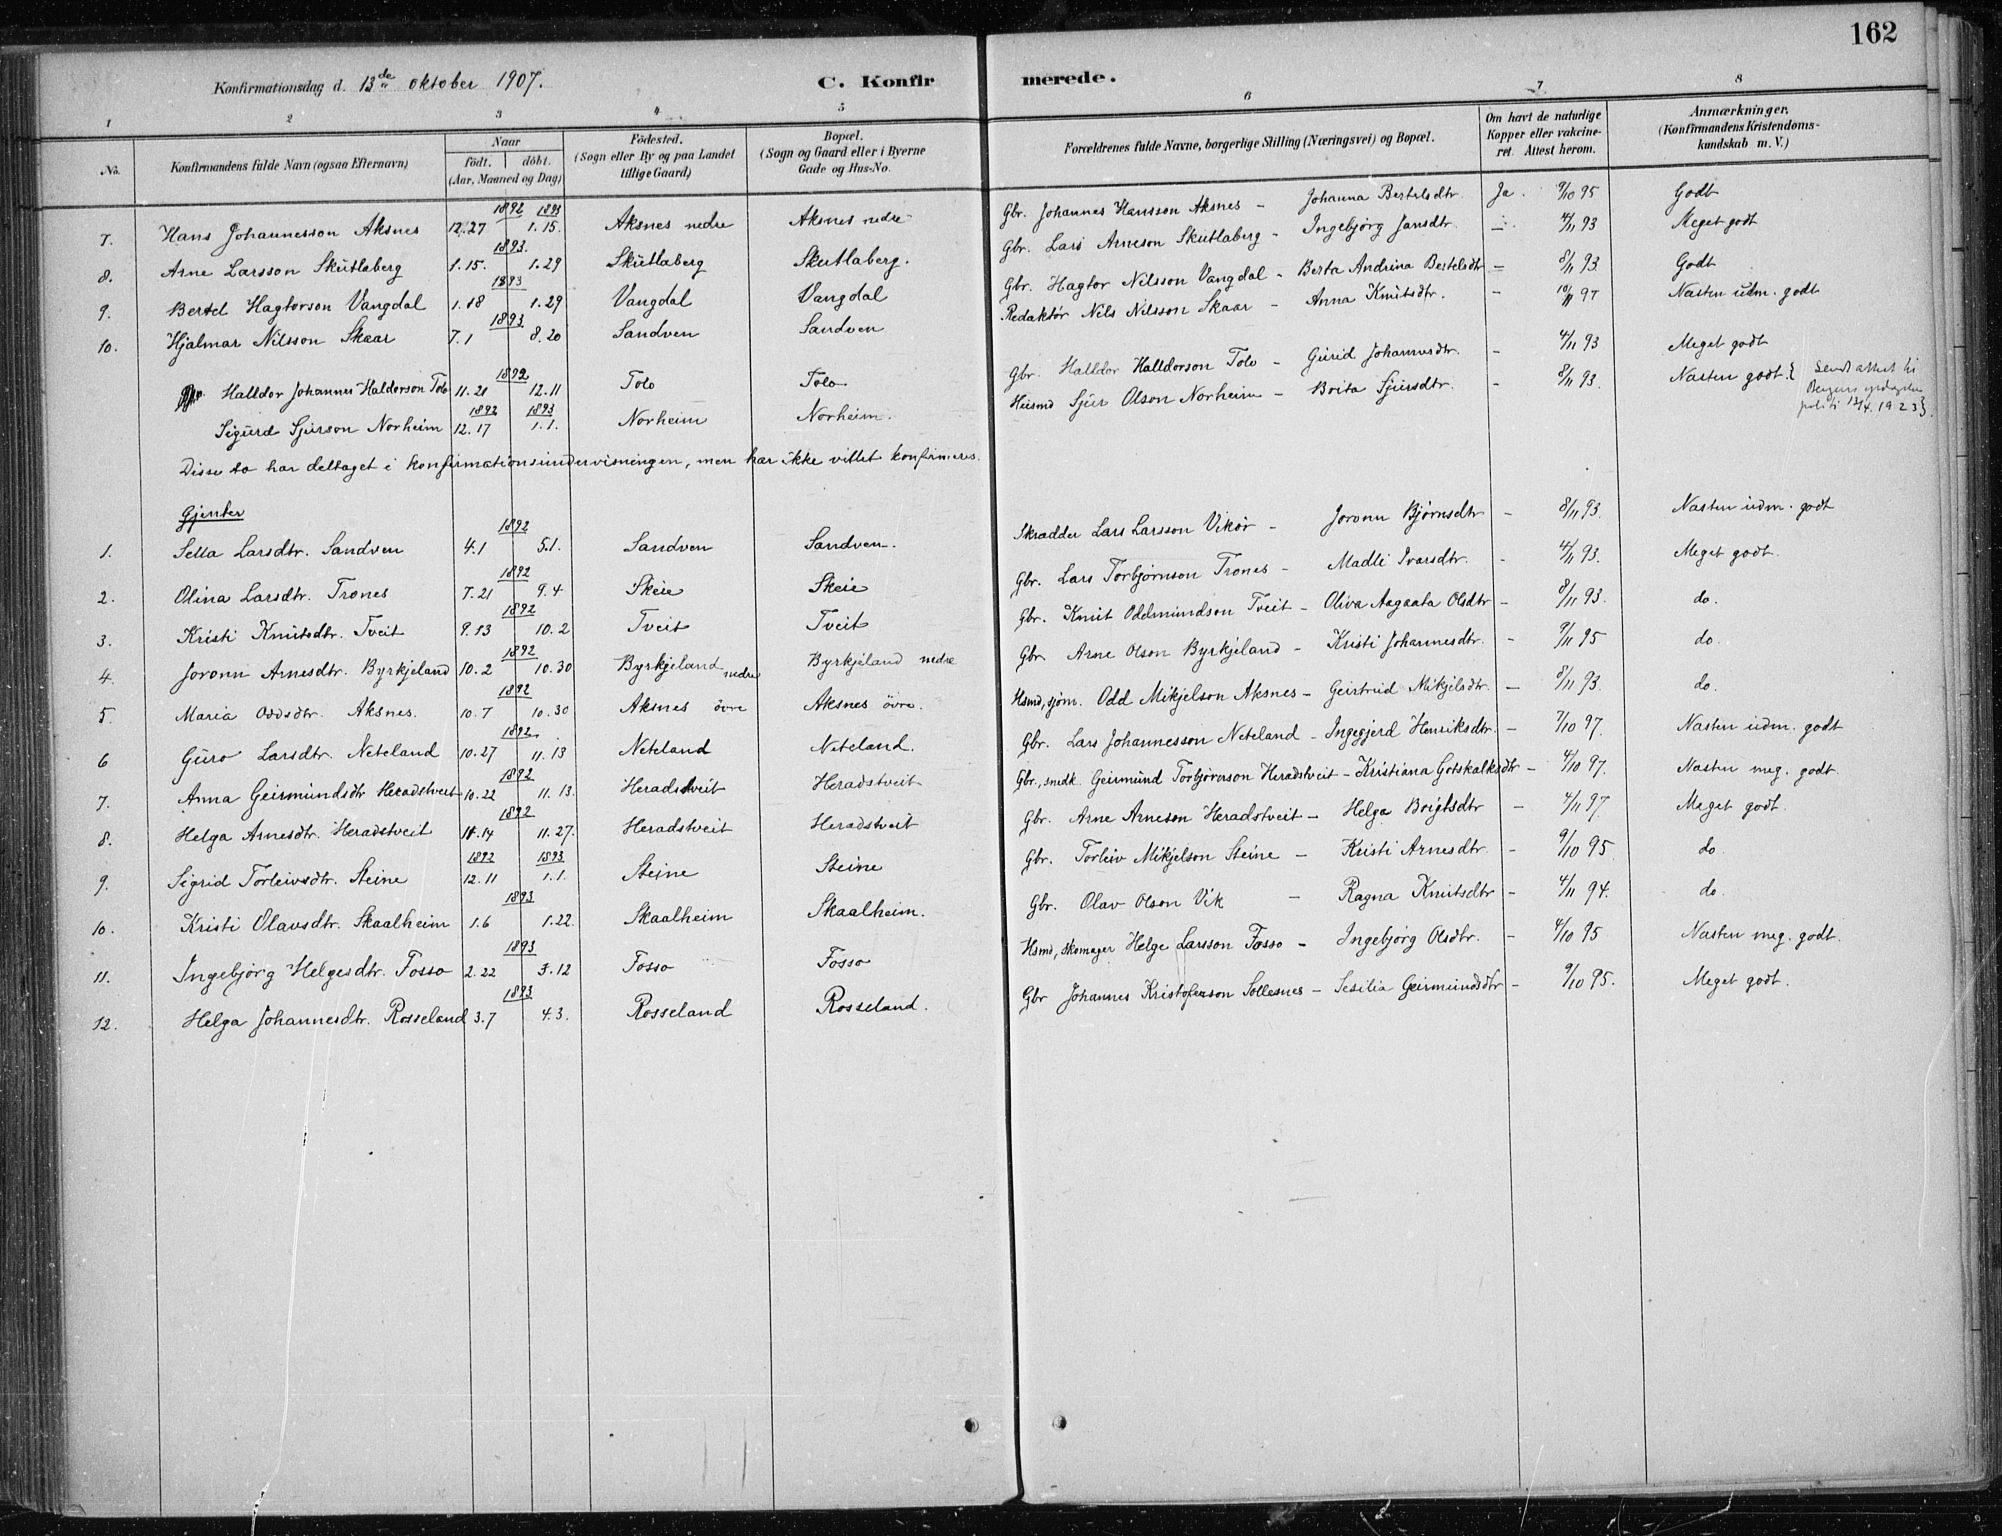 162
Konfirmationsdag d. 13de oktober 1907.
C. Konfirmerede.
1 2 3 4 5 6 7 8
No. Konfirmandens fulde Navn (ogsaa Efternavn) Naar født. døbt. (Aar, Maaned og Dag) Fødested. (Sogn eller By og paa Landet tillige Gaard) Bopæl. (Sogn og Gaard eller i Byerne Gade og Hus-No. Forældrenes fulde Navne, borgerlige Stilling (Næringsvei) og Bopæl. Om havt de naturlige Kopper eller vakcineret. Attest herom. Anmærkninger. (Konfirmandens Kristendomskundskab m. V.)
1892 1893
7. Hans Johannesson Aksnes 12.27 1.15. Aksnes nedre Aksnes nedre Gbr. Johannes Hansson Aksnes - Johanna Bertelsdtr. Ja. 9/10 95 Godt
1893.
8. Arne Larsson Skutlaberg 1.15. 1.29 Skutlaberg Skutlaberg. Gbr. Lars Arneson Skutlaberg - Ingebjørg Jansdtr. - 4/11 93 Meget godt
1893
9. Bertel Hagtorson Vangdal 1.18 1.29 Vangdal Vangdal Gbr. Hagtor Nilsson Vangdal - Berta Andrina Bertelsdtr - 8/11 93 Godt
1893
10. Hjalmar Nilsson Skaar 7.1 8.20 Sandven Sandven Redaktør Nils Nilsson Skaar - Anna Knutsdtr. - 10/11 97 Næsten udm. godt
1892
Halldor Johannes Haldorson Tolo 11.21 12.11 Tolo Tolo Gbr. Halldor Halldorson Tolo - Gurid Johannesdtr. - 4/11 93 Meget godt
1892 1893
Sigurd Sjurson Norheim 12.17 1.1. Norheim Norheim. Heismd Sjur Olson Norheim - Brita Sjursdtr. - 8/11 93. Næsten godt. { Sendt attest til Bergens politi 12/4. 1923}.
Disse to har deltaget i konfirmationsundervisningen, men har ikke villet konfirmeres.
Gjenter
1892
1. Sella Larsdtr. Sandven 4.1 5.1. Sandven Sandven. Skrædder Lars Larsson Vikør - Joronn Bjørnsdtr - 8/11 93. Næsten udm. godt
1892
2. Olina Larsdtr. Trones 7.21 9.4 Skeie Skeie Gbr. Lars Torbjørnson Trones - Madli Ivarsdtr. - 4/11 93. Meget godt.
1892
3. Kristi Knutsdtr. Tveit 9.13 10.2 Tveit Tveit Gbr. Knut Oddmundson Tveit - Oliva Aagaata Olsdtr - 8/11 93. do.
1892
4. Joronn Arnesdtr. Byrkjeland 10.2 10.30 Byrkjeland nedre Byrkjeland nedre Gbr. Arne Olson Byrkjeland - Kristi Johannesdtr. - 9/11 95 do.
1892
5. Maria Oddsdtr. Aksnes. 10.7 10.30 Aksnes øvre Aksnes øvre. Hsmd, sjøm. Odd Mikjelson Aksnes - Geirtrud Mikjelsdtr. - 8/11 93. do.
1892
6 Guro Larsdtr. Neteland 10.27 11.13 Neteland Neteland. Gbr. Lars Johannesson Neteland - Ingegjerd Henriksdtr. - 7/10 97. Næsten udm. godt
1892
7. Anna Geirmundsdtr Heradstveit 10.22 11.13. Heradstveit Heradstveit Gbr., smedk. Geirmund Torbjørnson Heradstveit - Kristiana Gotskalksdtr - 4/10 97. Næsten meg. godt.
1892
8. Helga Arnesdtr. Heradstveit 11.14 11.27. Heradstveit Heradstveit Gbr. Arne Arneson Heradstveit - Helga Brigtsdtr - 4/11 97. Meget godt.
1892 1893
9. Sigrid Torleivsdtr. Steine 12.11 1.1. Steine Steine Gbr. Torleiv Mikjelson Steine - Kristi Arnesdtr - 9/10 95. do.
1893
10. Kristi Olavsdtr. Skaalheim 1.6 1.22. Skaalheim Skaalheim. Gbr. Olav Olson Vik - Ragna Knutsdtr - 4/11 94. do.
1893
11. Ingebjørg Helgesdtr. Fosso 2.22 3.12 Fosso Fosso Hsmd, skomager Helge Larsson Fosso - Ingebjørg Olsdtr. - 4/10 95 Næsten meg. godt.
1893
12. Helga Johannesdtr. Rosseland 3.7 4.3. Rosseland Rosseland. Gbr Johannes Kristoferson Sollesnes - Sesilia Geirmundsdtr - 9/10 95. Meget godt.